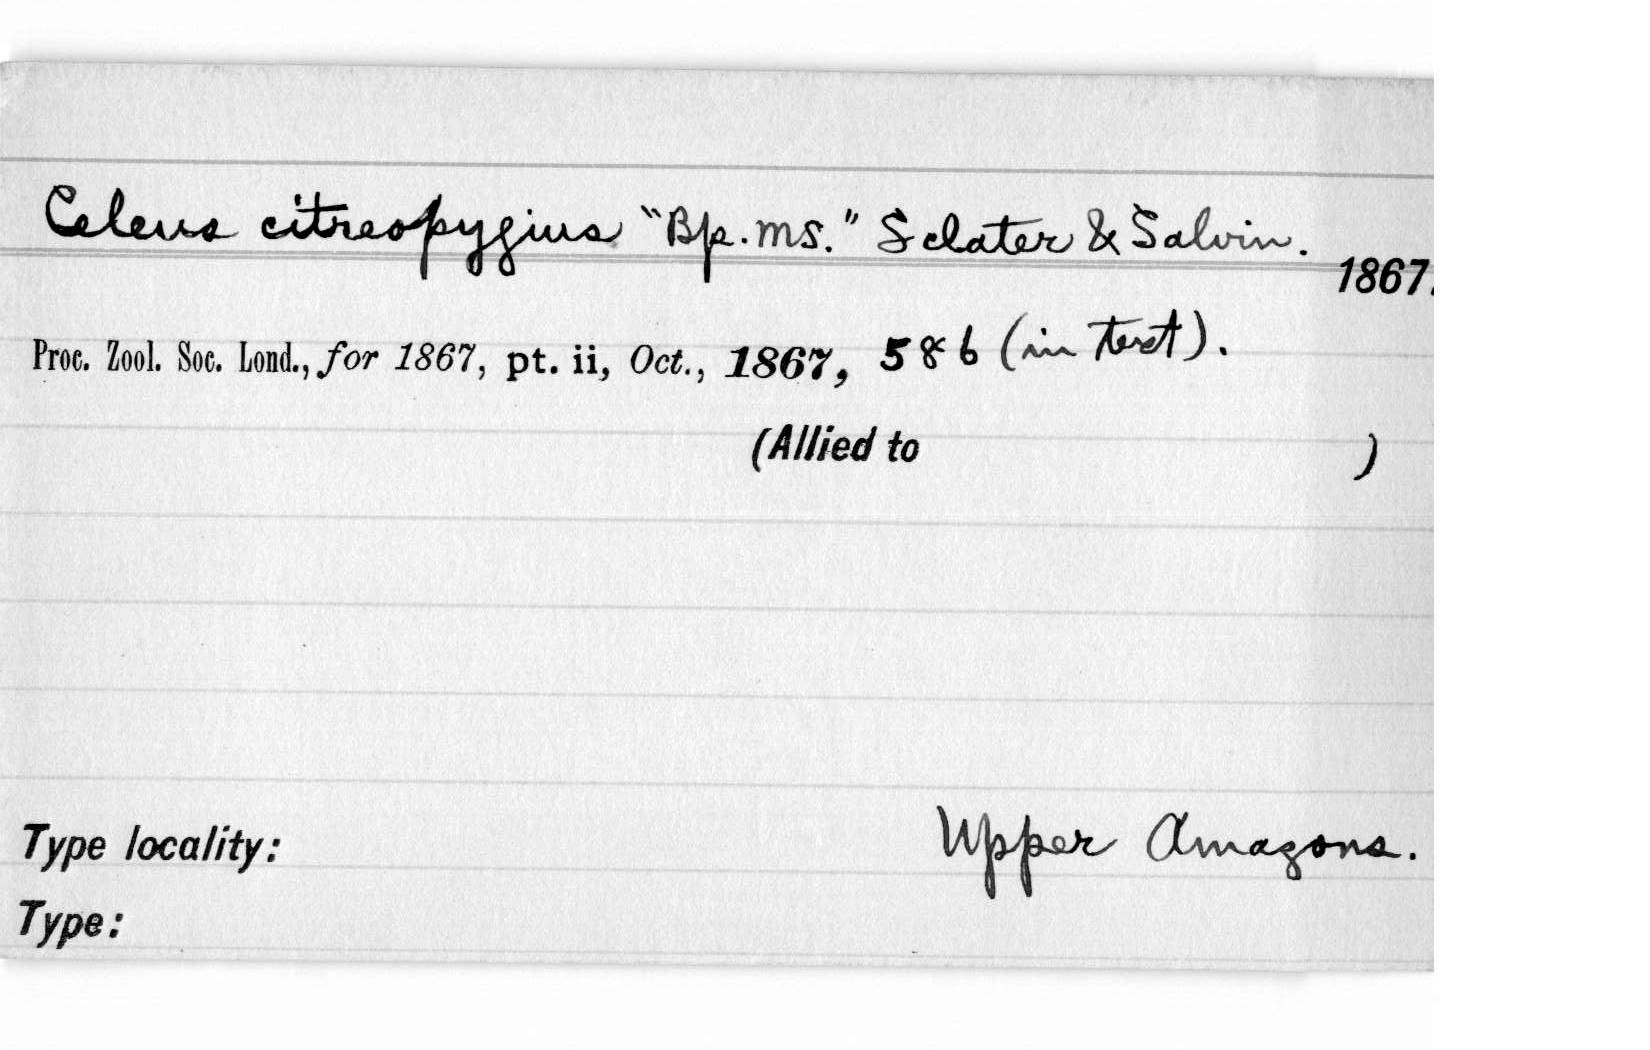 Celeus citreopygius "Bp. ms." Sclater & Salvin. 1867.
Proc. Zool. Soc. Lond., for 1867, pt. ii, Oct., 1867, 586 (in text).
(Allied to )
Type locality: Upper Amazons.
Type: